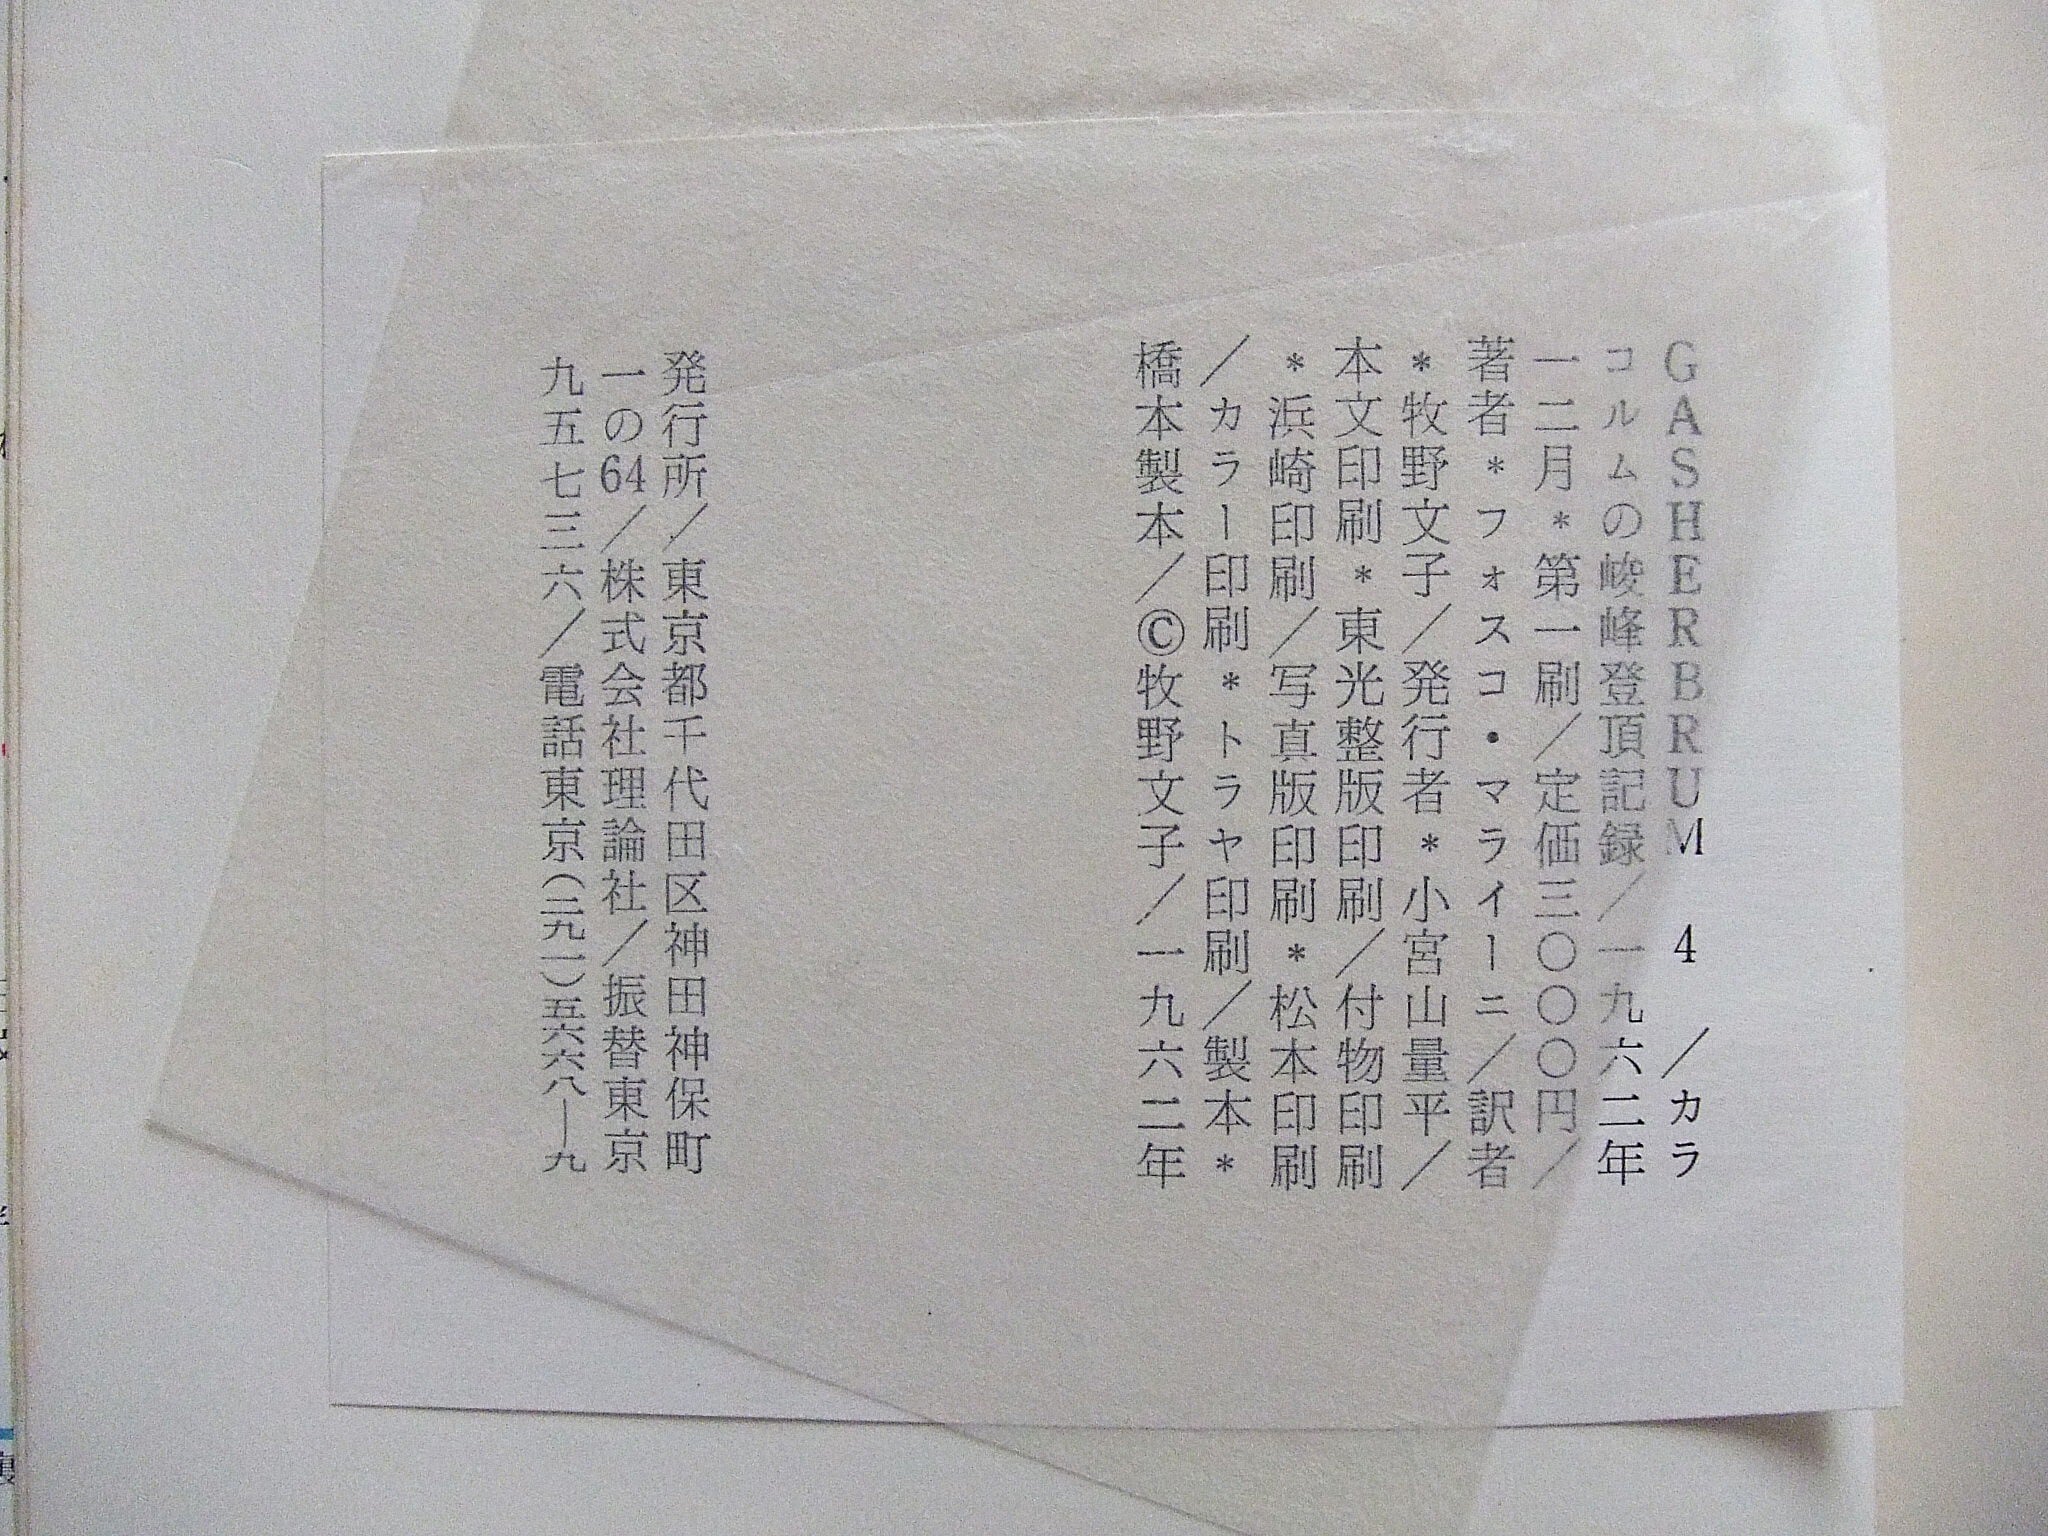 GASHERBRUM 4／カラ
コルムの峻峰登頂記録／一九六二年
一二月＊第一刷／定価三〇〇〇円／
著者＊フォスコ・マライーニ／訳者
＊牧野文子／発行者＊小宮山量平／
本文印刷＊東光整版印刷／付物印刷
＊浜崎印刷／写真版印刷＊松本印刷
／カラー印刷＊トラヤ印刷／製本＊
橋本製本／©牧野文子／一九六二年
発行所／東京都千代田区神田神保町
一の64／株式会社理論社／振替東京
九五七三六／電話東京(二九一)五六六八―九